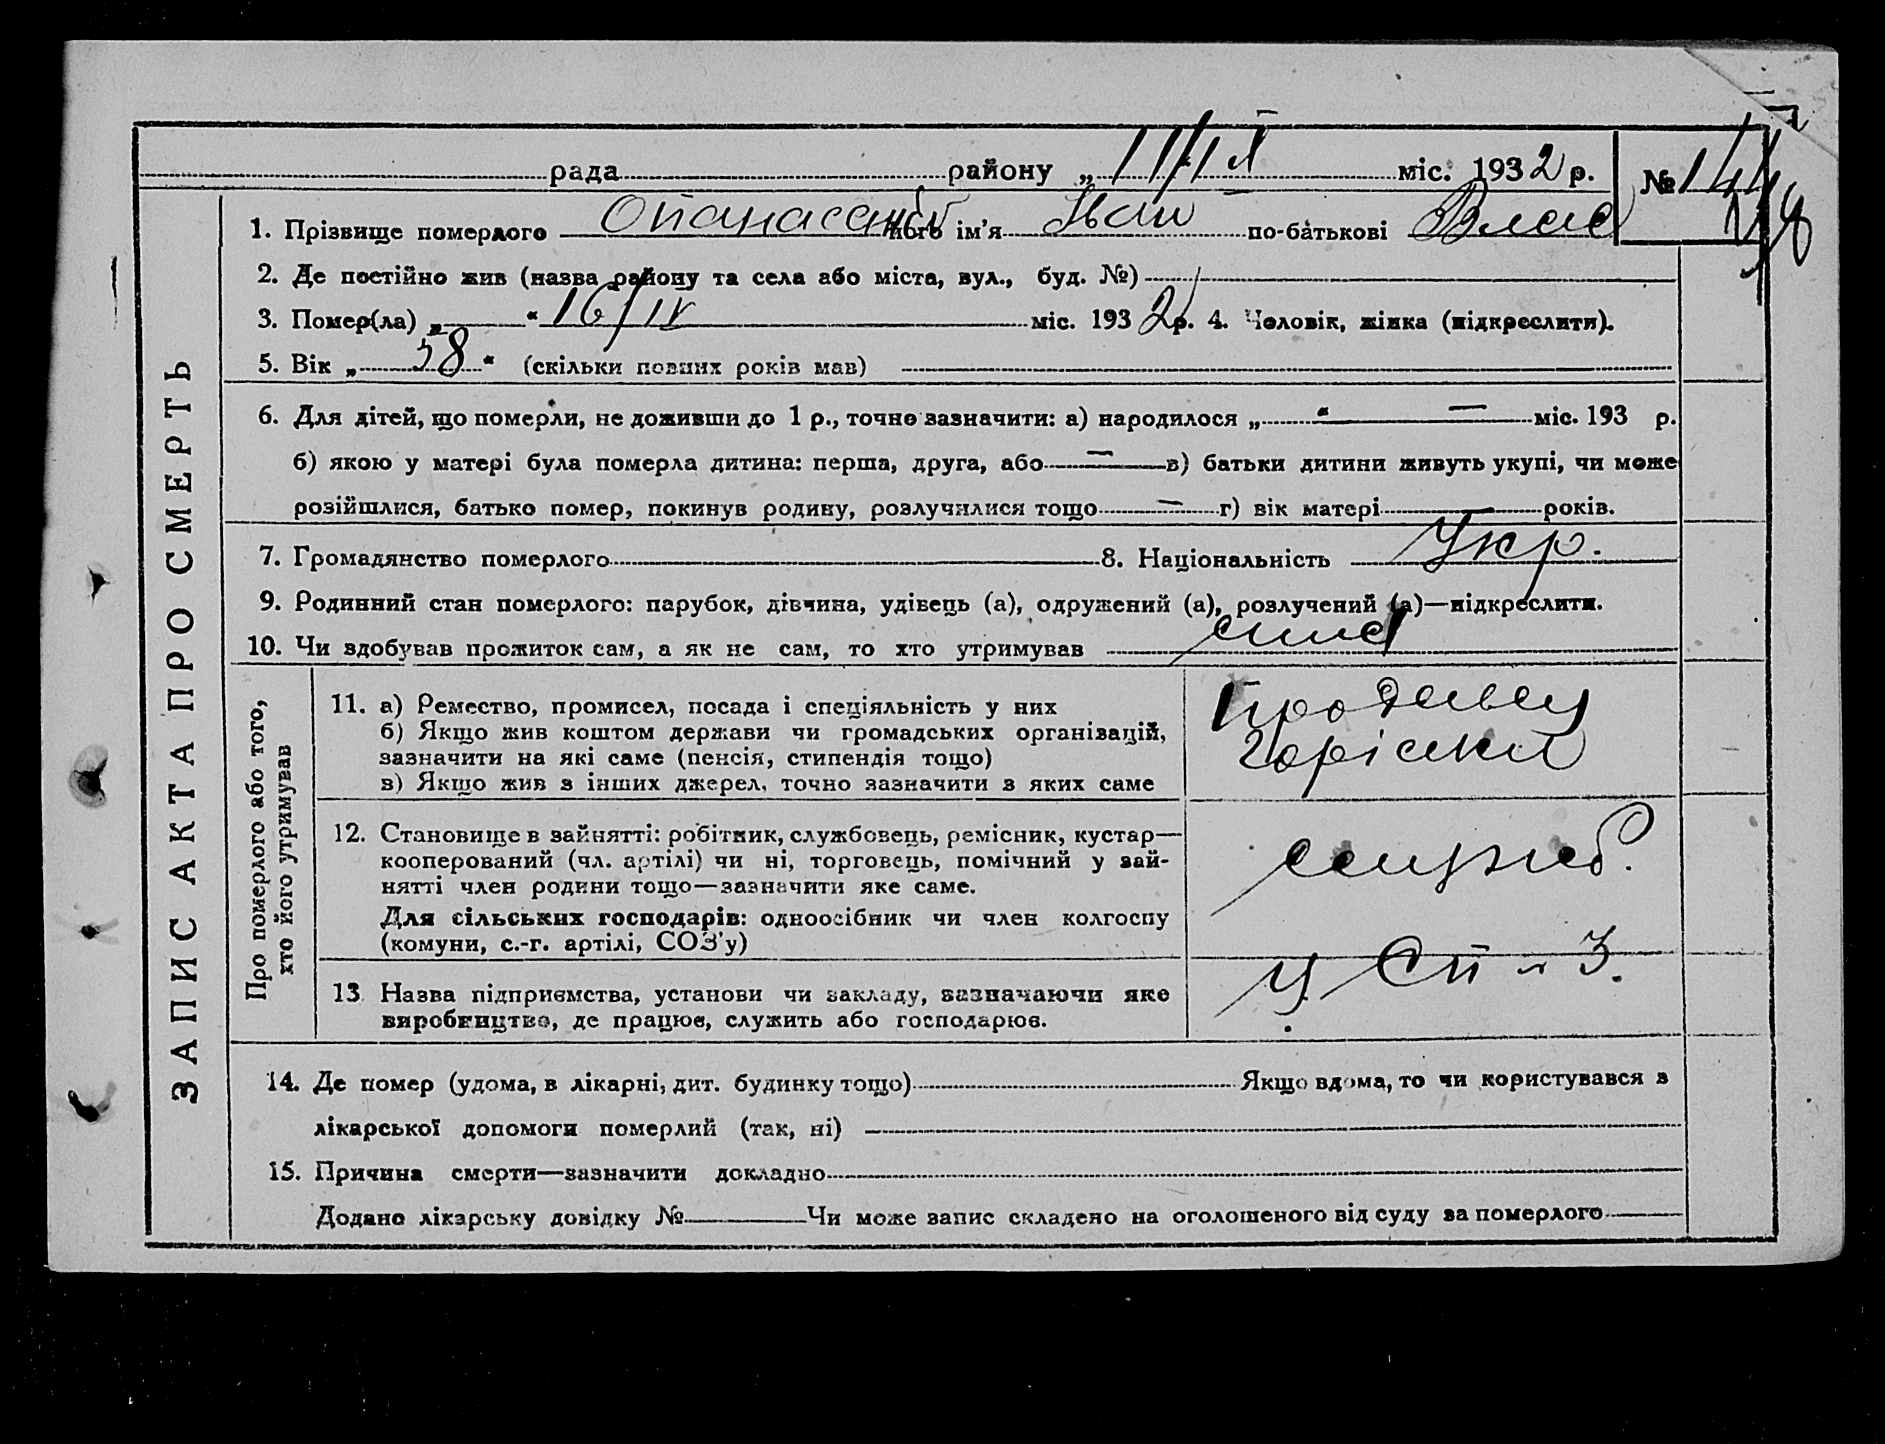 рада району „ 11/IX міс. 1932 р. №
1. Прізвище померлого Опанасенко його ім'я Іван по-батькові Влас
2. Де постійно жив (назва району та села або міста, вул., буд. №)
3. Помер(ла) „ “ 16/IV міс. 1932 р. 4. Чоловік, жінка (підкреслити).
5. Вік „ 58 “ (скільки повних років мав)
6. Для дітей, що померли, не доживши до 1 р., точно зазначити: а) народилося „ “ — міс. 193 р.
б) якою у матері була померла дитина: перша, друга, або — в) батьки дитини живуть укупі, чи може
розійшлися, батько помер, покинув родину, розлучилися тощо — г) вік матері років.
7. Громадянство померлого 8. Національність Укр.
9. Родинний стан померлого: парубок, дівчина, удівець (а), одружений (а), розлучений (а)—підкреслити.
10. Чи здобував прожиток сам, а як не сам, то хто утримував
ЗАПИС АКТА ПРО СМЕРТЬ
Про померлого або того,
хто його утримував
11. а) Ремество, промисел, посада і спеціяльність у них
б) Якщо жив коштом держави чи громадських організацій,
зазначити на які саме (пенсія, стипендія тощо)
в) Якщо жив з інших джерел, точно зазначити з яких саме
12. Становище в зайнятті: робітник, службовець, ремісник, кустар—
кооперований (чл. артілі) чи ні, торговець, помічний у зай-
нятті член родини тощо—зазначити яке саме.
Для сільських господарів: одноосібник чи член колгоспу
(комуни, с.-г. артілі, СОЗ'у)
13 Назва підприємства, установи чи закладу, зазначаючи яке
виробництво, де працює, служить або господарює.
14. Де помер (удома, в лікарні, дит. будинку тощо) Якщо вдома, то чи користувався з
лікарської допомоги померлий (так, ні)
15. Причина смерти—зазначити докладно
Додано лікарську довідку № Чи може запис складено на оголошеного від суду за померлого